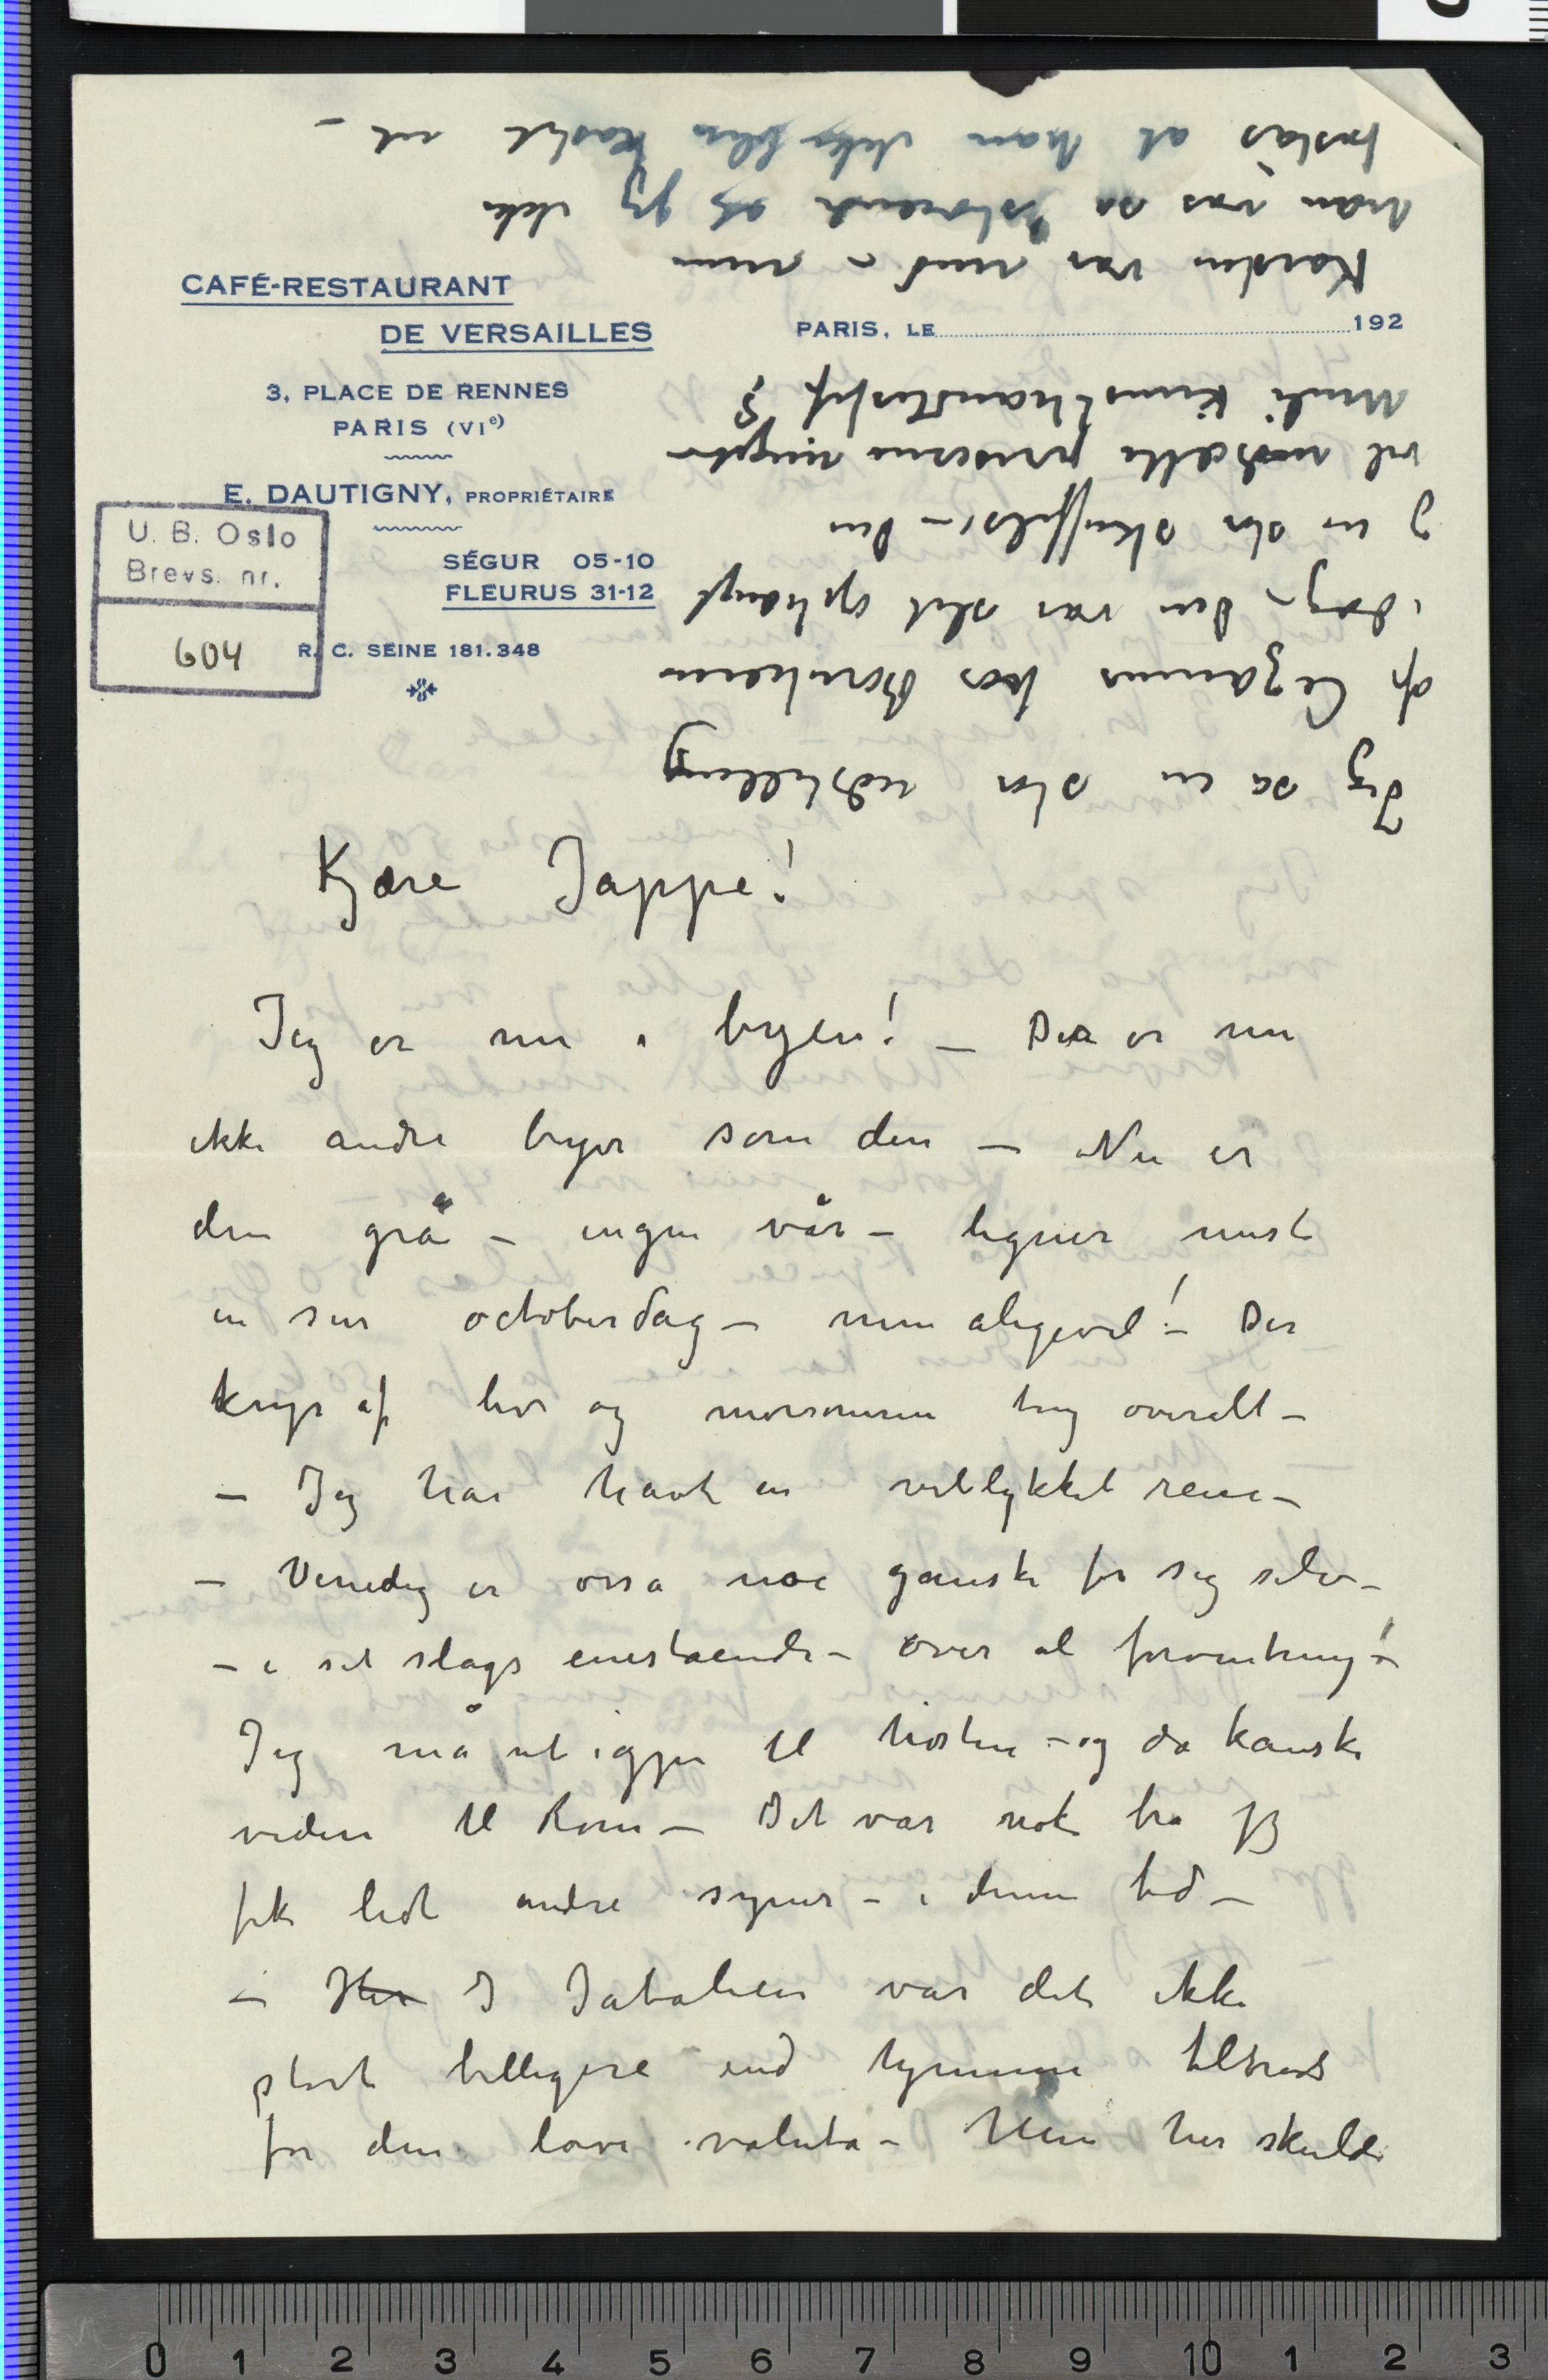 CAFÉ-RESTAURANT
DE VERSAILLES
3, PLACE DE RENNES
PARIS (VIe)
E. DAUTIGNY, PROPRIÉTAIRE
SÉGUR 05-10
FLEURUS 31-12
R. C. SEINE 181.348
PARIS, LE 192
U. B. Oslo
Brevs. nr.
604
Kjære Jappe!
Jeg er nu i byen! – Der er nu
ikke andre byer som den – Nu er
den grå – ingen vår – ligner mest
en sur octoberdag – men aligevel! – Der
kryr af liv og morsomme ting overalt –
– Jeg har havt en vellykket reise –
– Venedig er osså noe ganske for sig selv –
– i sit slags enestaaende – over al forventning! –
Jeg må ut igjen til høsten – og da kanske
videre til Rom – Det var nok bra jeg
fik lidt andre syner – i denne tid –
– Her I Italien var det ikke
stort billigere end hjemme tiltrods
for den lave valuta – Men her skulde
Jeg så en stor udstilling
af Cezannes hos Bernheim
idag – Den var slet ophængt
I en stor skuffelse – Den
vil nedsætte priserne
Kunsthandlerpff?
Karsten var med –
han var så at jeg ikke
forstår at han ikke blev kastet ut –